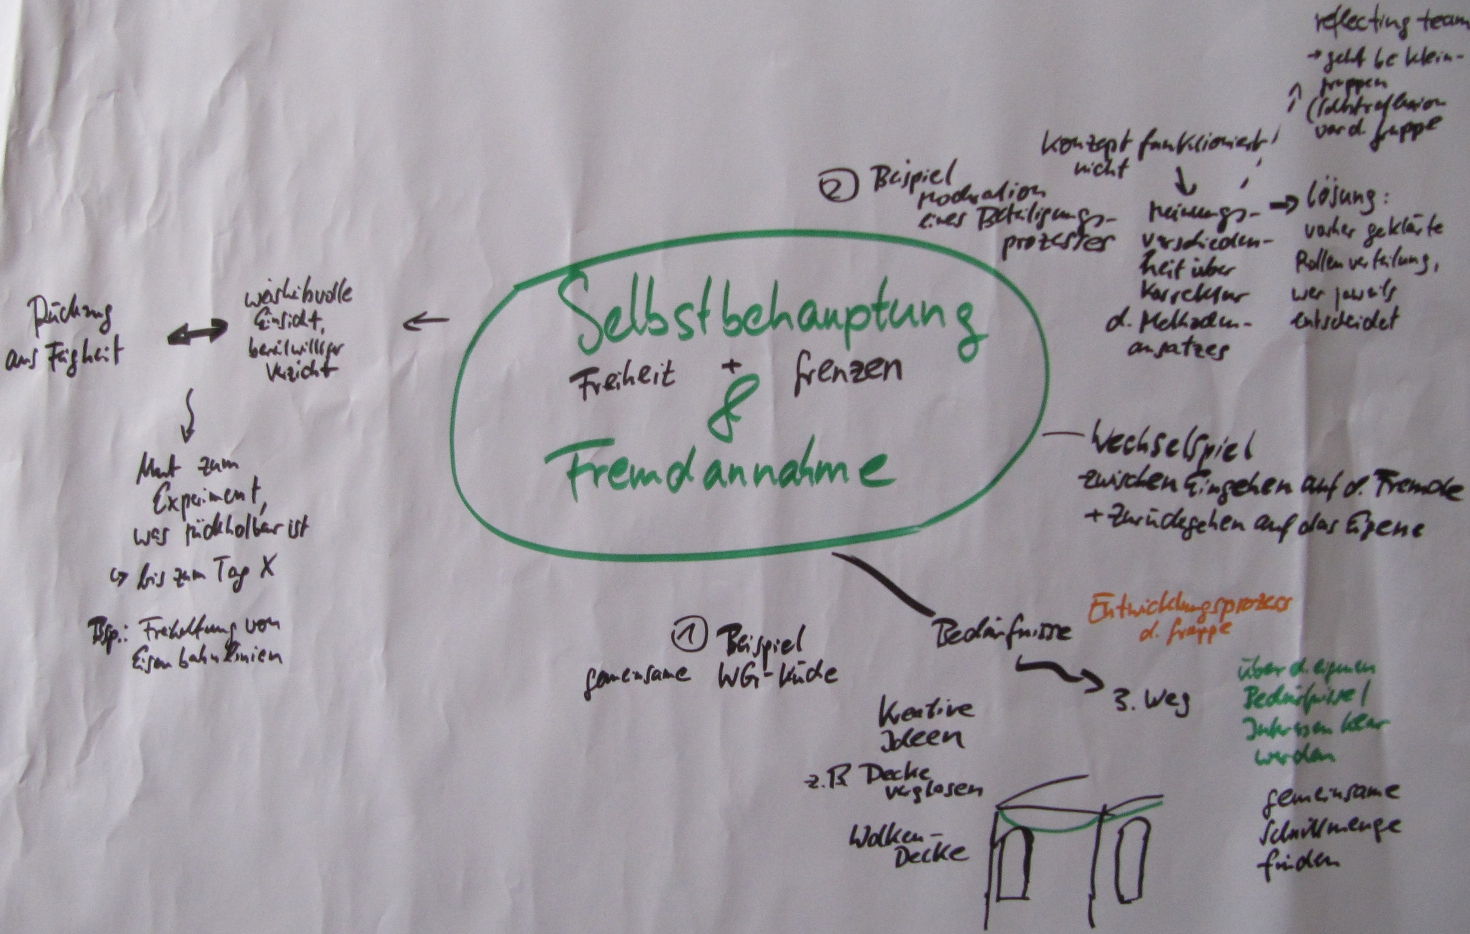 Selbstbehauptung
Freiheit + Grenzen
&
Fremdannahme
weisheitsvolle
Einsicht,
bereitwilliger
Verzicht
aus Feigheit
Mut zum
Experiment,
was rückholbar ist
↳ bis zum Tag X
Bsp.: Freihaltung von
Eisenbahnlinien
② Beispiel
Moderation
eines Beteiligungs-
prozesses
Konzept funktioniert
nicht
Meinungs-
verschieden-
heit über
Korrektur
d. Methoden-
ansatzes
Lösung:
vorher geklärte
Rollenverteilung,
wer jeweils
entscheidet
reflecting team
→ geht bei Klein-
gruppen
(Selbstreflexion
vor d. Gruppe
Wechselspiel
zwischen Eingehen auf d. Fremde
+ Zurückgehen auf das Eigene
Bedürfnisse
Entwicklungsprozess
d. Gruppe
3. Weg
über d. eigenen
Bedürfnisse/
Interessen klar
werden
gemeinsame
Schnittmenge
finden
① Beispiel
gemeinsame WG-Küche
Kreative
Ideen
z.B Decke
verglasen
Wolken-
Decke